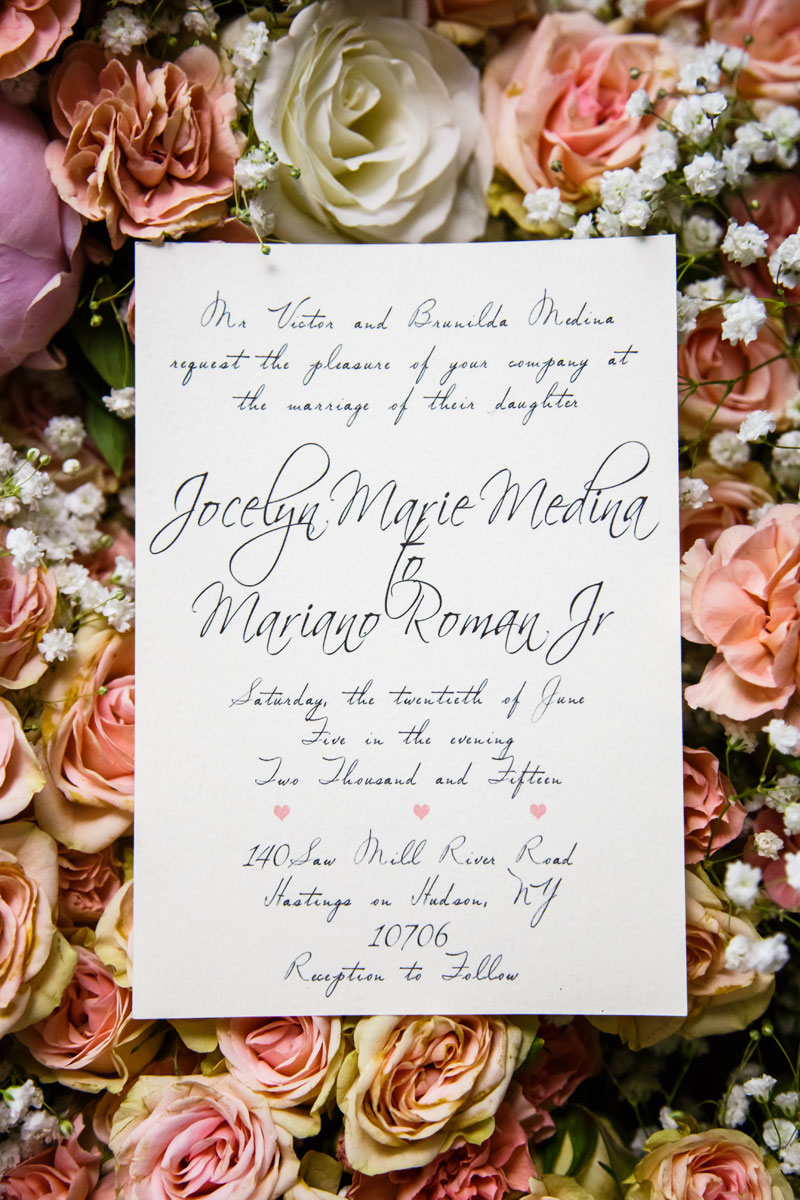 Mr Victor and Brunilda Medina
request the pleasure of your company at
the marriage of their daughter
Jocelyn Marie Medina
to
Mariano Roman Jr
Saturday, the twentieth of June
Five in the evening
Two Thousand and Fifteen
140 Saw Mill River Road
Hastings on Hudson, NY
10706
Reception to Follow